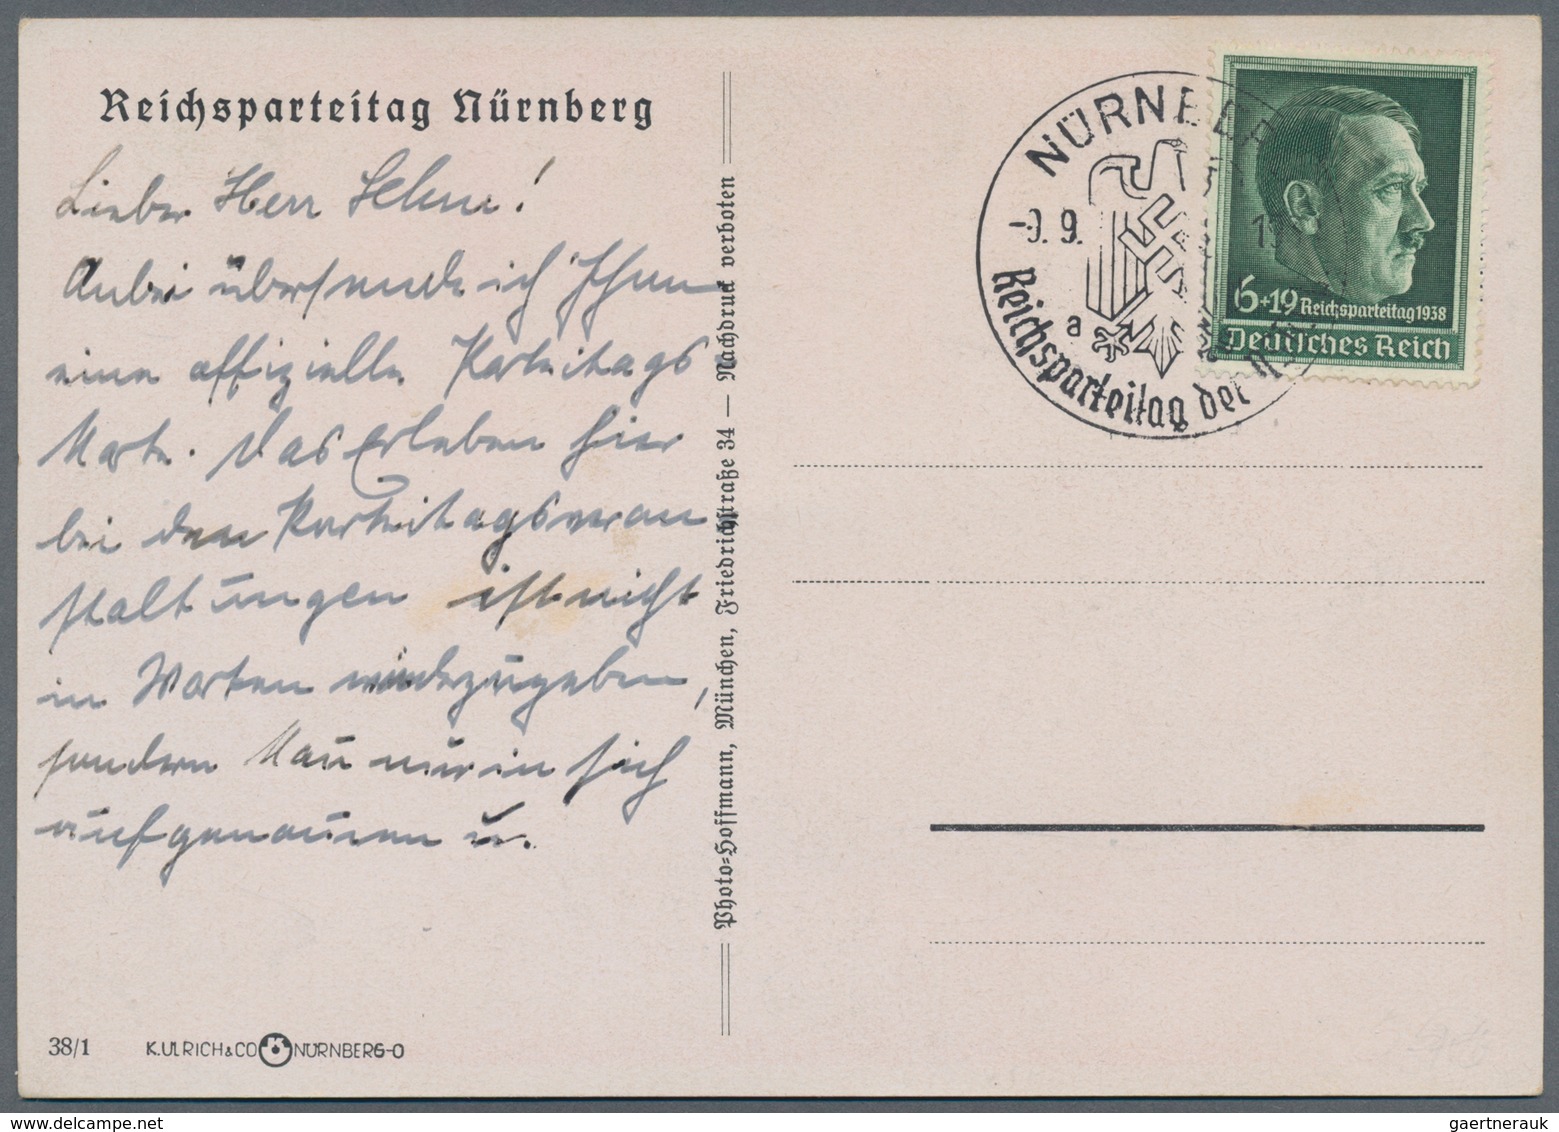 Reichsparteitag Nürnberg
Lieber Herr
Anbei übersende ich Ihnen
eine offizielle Parteitags
Marke. Das Erleben hier
bei den Parteitagsveran
staltungen ist nicht
in Worten wiederzugeben,
sondern kann nur in sich
aufgenommen u.
38/1 K. ULRICH & CO NÜRNBERG-O
Photo-Hoffmann, München, Friedrichstraße 34 — Nachdruck verboten
NÜRNBER
-9. 9. 19
a
Reichsparteitag der
6+19 Reichsparteitag 1938
Deutsches Reich
gaertnerauk